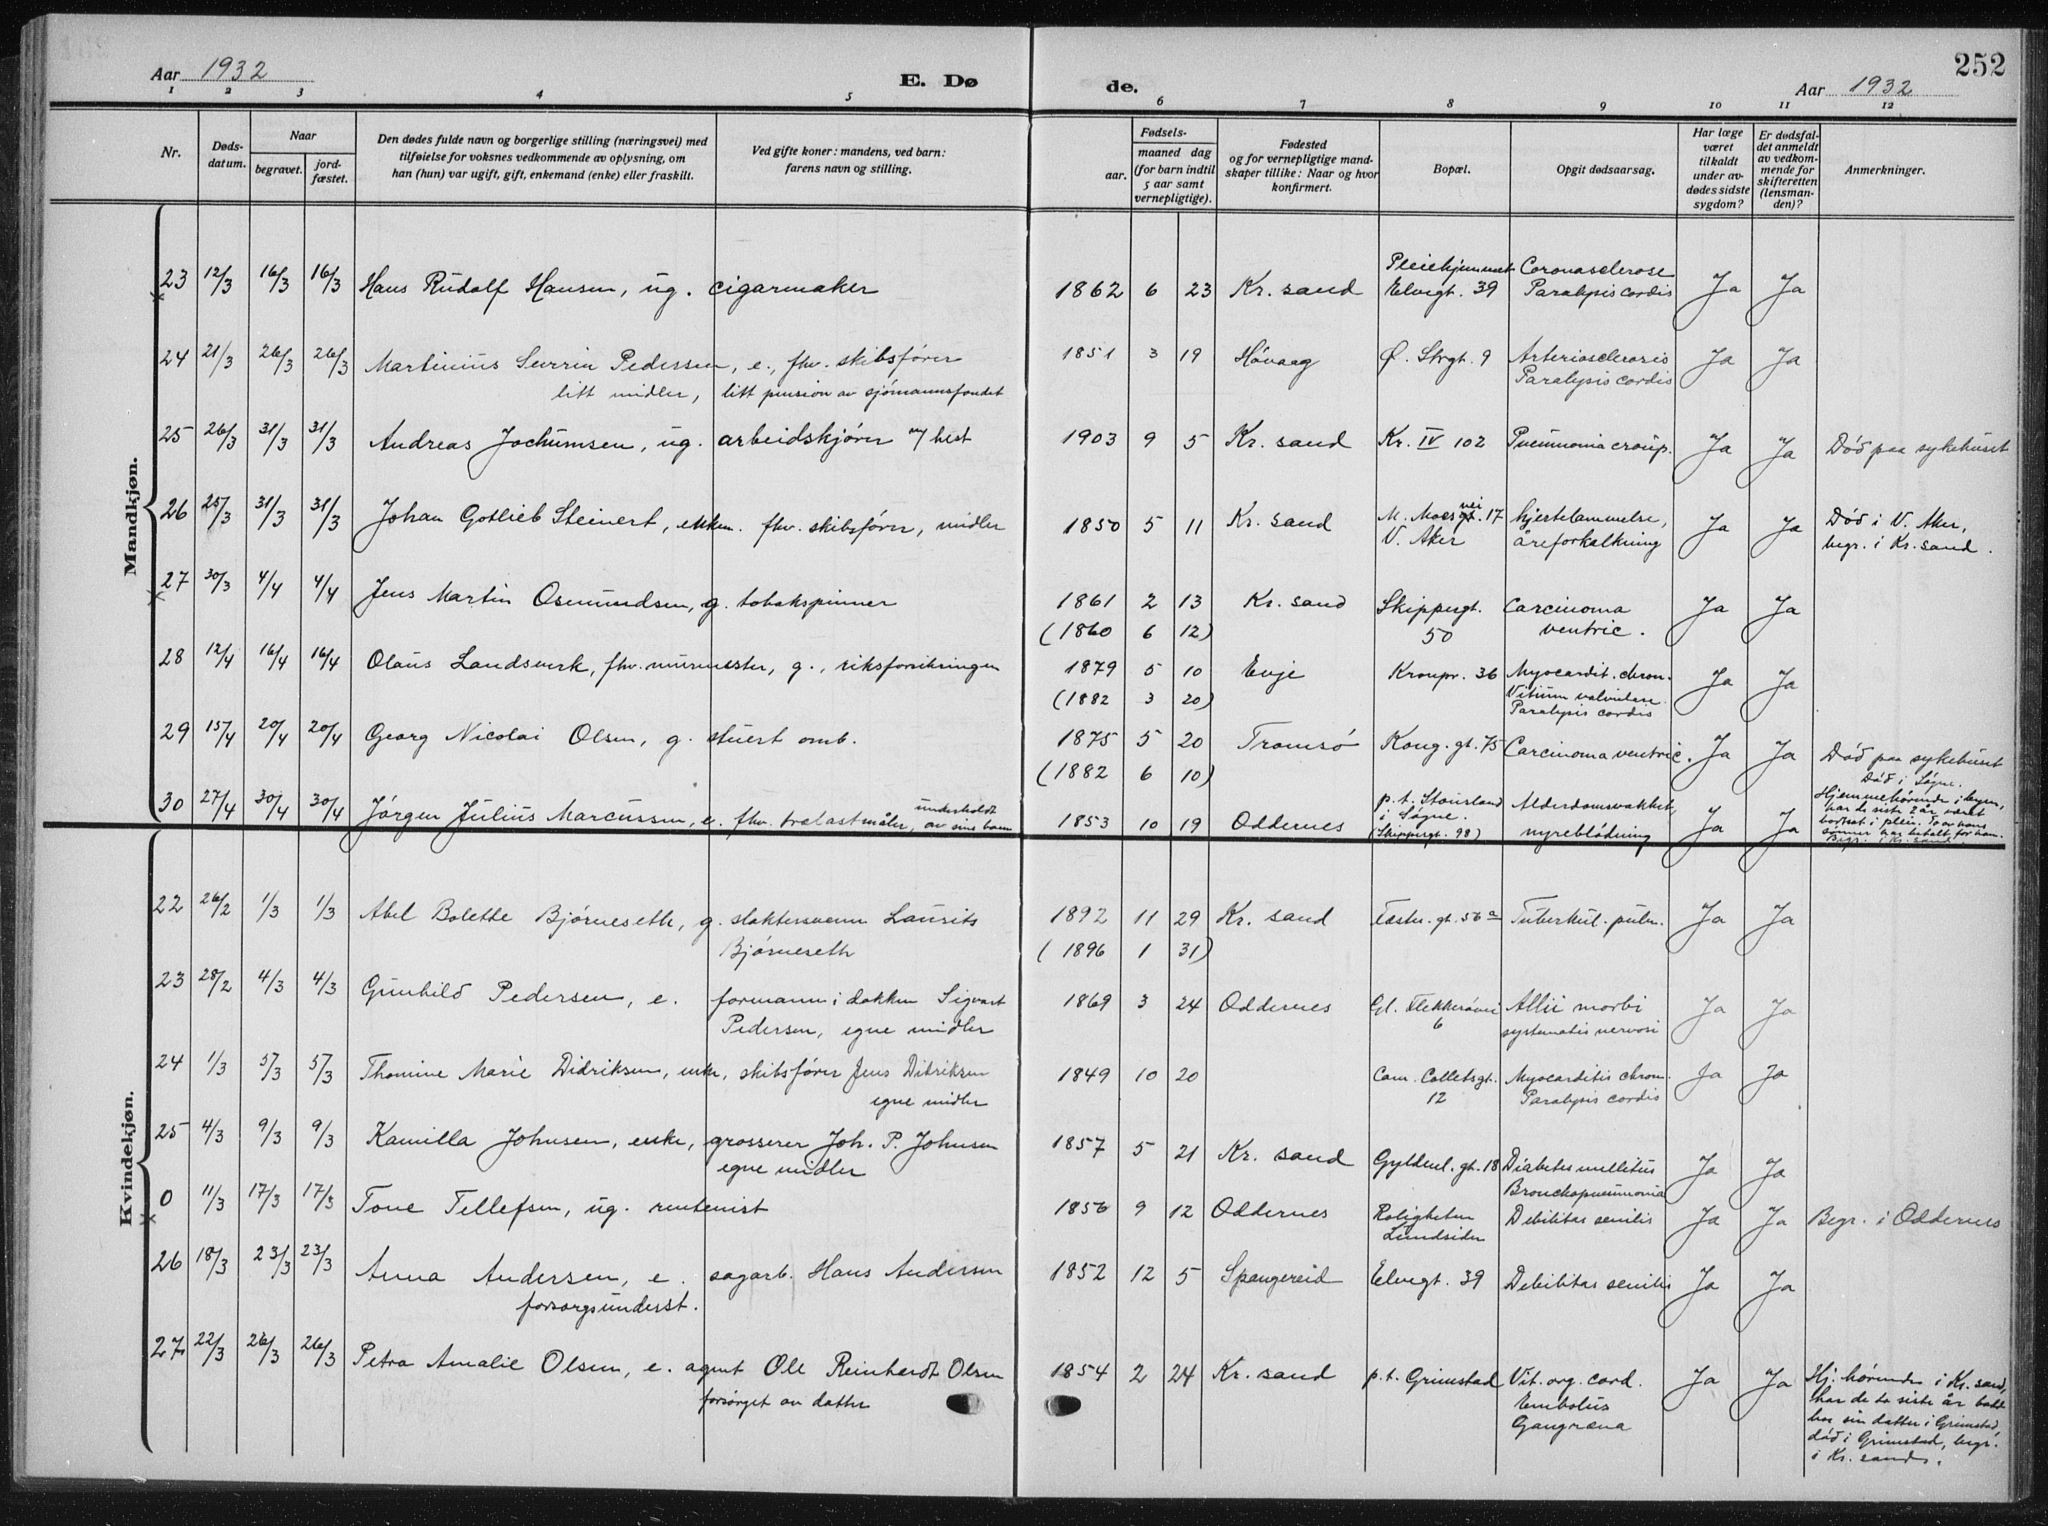 252
Aar 1932
E. Dø
de.
Aar 1932
1 2 3 4 5 6 7 8 9 10 11 12
Nr.
Døds-
datum.
Naar
begravet.
jord-
fæstet.
Den dødes fulde navn og borgerlige stilling (næringsvei) med
tilføielse for voksnes vedkommende av oplysning, om
han (hun) var ugift, gift, enkemand (enke) eller fraskilt.
Ved gifte koner: mandens, ved barn:
farens navn og stilling.
Fødsels-
aar.
maaned dag
(for barn indtil
5 aar samt
vernepligtige).
Fødested
og for vernepligtige mand-
skaper tillike: Naar og hvor
konfirmert.
Bopæl.
Opgit dødsaarsag.
Har læge
været
tilkaldt
under av-
dødes sidste
sygdom?
Er dødsfal-
det anmeldt
av vedkom-
mende for
skifteretten
(lensman-
den)?
Anmerkninger.
Mandkjøn.
23 12/3 16/3 16/3 Hans Rudolf Hansen, ug. cigarmaker 1862 6 23 Kr. sand Pleiehjemmet Elvegt. 39 Coronasclerose Paralysis cordis Ja Ja
24 21/3 26/3 26/3 Martinius Severin Pedersen, e., fhv. skibsfører 1851 3 19 Høvaag Ø. Strgt. 9 Arteriosclerosis Paralysis cordis Ja Ja
litt midler, litt pension av sjømannsfondet
25 26/3 31/3 31/3 Andreas Jochumsen, ug. arbeidskjører m/ hest 1903 9 5 Kr. sand Kr. IV 102 Pneumonia croup. Ja Ja Død paa sykehuset
26 25/3 31/3 31/3 Johan Gotlieb Steinert, enkem. fhv. skibsfører, midler 1850 5 11 Kr. sand M. Moesgt. vei 17 V. Aker hjertelammelse, åreforkalkning Ja Ja Død i V. Aker, begr. i Kr. sand.
27 30/3 4/4 4/4 Jens Martin Osmundsen, g. tobakspinner 1861 2 13 Kr. sand Skippergt. 50 Carcinoma ventric. Ja Ja
(1860 6 12)
28 12/4 16/4 16/4 Olaus Landsverk, fhv. murmester, g., riksforsikringen 1879 5 10 Evje Kronpr. 36 Myocardit. chron. Vitium valvulare Paralysis cordis Ja Ja
(1882 3 20)
29 15/4 20/4 20/4 Georg Nicolai Olsen, g. stuert omb. 1875 5 20 Tromsø Kong. gt. 75 Carcinoma ventric. Ja Ja Død paa sykehuset
(1882 6 10)
30 27/4 30/4 30/4 Jørgen Julius Marcussen, e. fhv. trelastmåler, underholdt av sine barn 1853 10 19 Oddernes p.t. Stousland i Søgne. (Skippergt. 98) Alderdomssvakhet, nyreblødning Ja Ja Død i Søgne.
Hjemmehørende i byen,
har de siste 2 år været
bortsat i pleie. To av hans
sønner har betalt for ham.
Begr. i Kr. sand.
Kvindekjøn.
22 26/2 1/3 1/3 Abel Bolette Bjørneseth, g. slaktersvenn Laurits Bjørneseth 1892 11 29 Kr. sand Fæstn. gt. 56 a Tuberkul. pulm. Ja Ja
(1896 1 31)
23 28/2 4/3 4/3 Gunhild Pedersen, e. formann i dokken Sigvart Pedersen, egne midler 1869 3 24 Oddernes Gl. Flekkerøvei 6 Allii morbi systematis nervosi Ja Ja
24 1/3 5/3 5/3 Thomine Marie Didriksen, enke, skibsfører Jens Didriksen egne midler 1849 10 20 Cam. Colletsgt. 12 Myocarditis chron. Paralysis cordis Ja Ja
25 4/3 9/3 9/3 Kamilla Johnsen, enke, grosserer Joh. P. Johnsen egne midler 1857 5 21 Kr. sand Gyldenl. gt. 18 Diabetes mellitus Bronchopneumonia Ja Ja
0 11/3 17/3 17/3 Tone Tellefsen, ug. rentenist 1856 9 12 Oddernes Roligheten Lundsiden Debilitas senilis Ja Ja Begr. i Oddernes
26 18/3 23/3 23/3 Anna Andersen, e. sagarb. Hans Andersen 1852 12 5 Spangereid Elvegt. 39 Debilitas senilis Ja Ja
forsorgsunderst.
27 22/3 26/3 26/3 Petra Amalie Olsen, e. agent Ole Reinhardt Olsen 1854 2 24 Kr. sand p.t. Grimstad Vit. org. cord. Embolus Gangræna Ja Ja Hj. hørende i Kr. sand,
forsørget av datter
har de to siste år bodd
hos sin datter i Grimstad,
død i Grimstad, begr.
i Kr. sand.